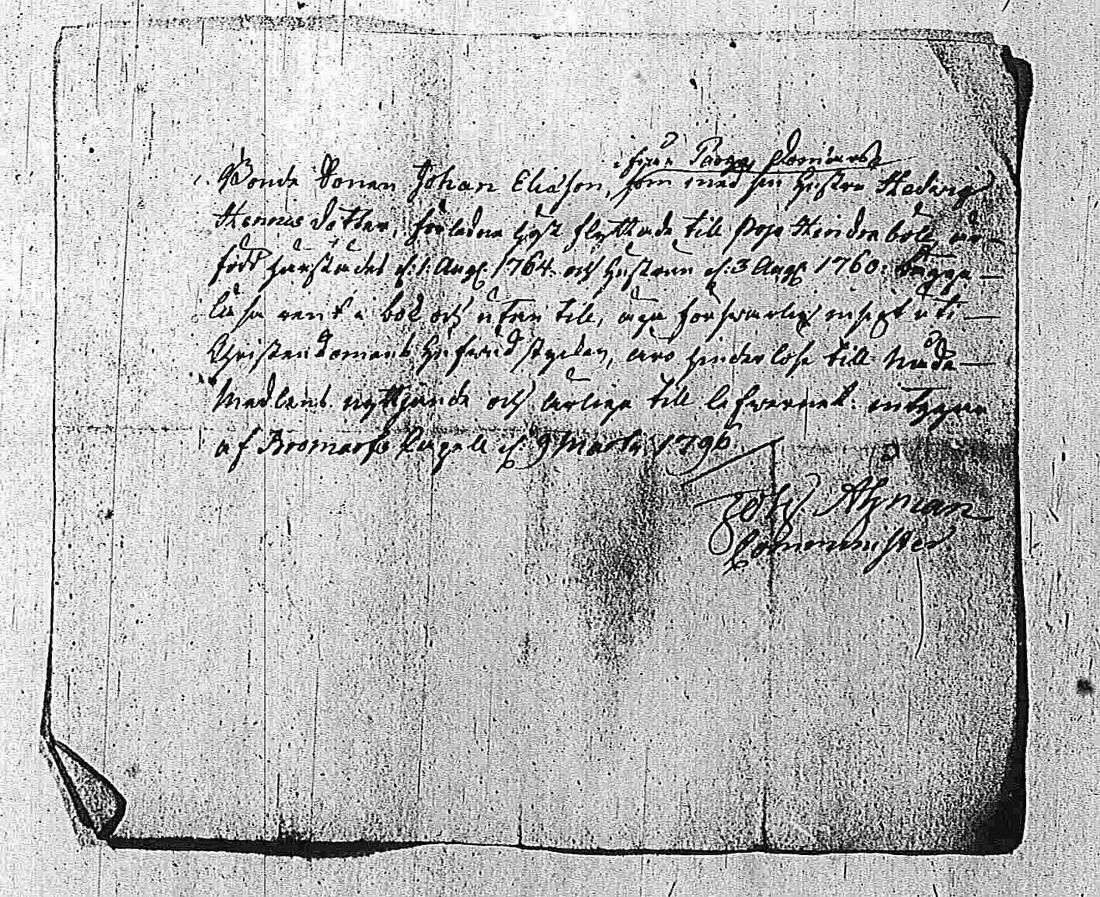 ifrån Torsby
Bonde Sonen Johan Eliæson, som med sin Hustru Hedvig
Hennes dotter, förledne höst flyttade till Pojo Hindrabölle, är
född härstädes d. 1. Aug. 1764 och Hustrun d. 3 Aug. 1760. Bägge
läsa rent i bok och utan till, äga försvarlig insigt uti
Christendomens hufvud stycken, äro hinderlöse till Nåde
Medlens nyttjande och ärlige till lefvernet. intygar
af Bromarfs Capell d. 9 Martii 1796.
Joh. Åhman
Comminister